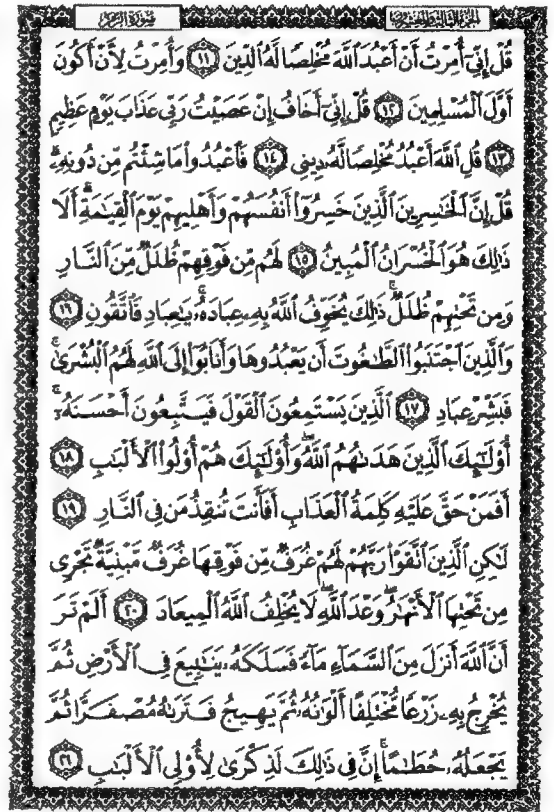 سورة الزمر الجزء الثالث والعشرون
قُلْ إِنِّىٓ أُمِرْتُ أَنْ أَعْبُدَ ٱللَّهَ مُخْلِصًا لَّهُ ٱلدِّينَ ١١ وَأُمِرْتُ لِأَنْ أَكُونَ
أَوَّلَ ٱلْمُسْلِمِينَ ١٢ قُلْ إِنِّىٓ أَخَافُ إِنْ عَصَيْتُ رَبِّى عَذَابَ يَوْمٍ عَظِيمٍ
١٣ قُلِ ٱللَّهَ أَعْبُدُ مُخْلِصًا لَّهُۥ دِينِى ١٤ فَٱعْبُدُوا۟ مَا شِئْتُم مِّن دُونِهِۦۗ
قُلْ إِنَّ ٱلْخَٰسِرِينَ ٱلَّذِينَ خَسِرُوٓا۟ أَنفُسَهُمْ وَأَهْلِيهِمْ يَوْمَ ٱلْقِيَٰمَةِۗ أَلَا
ذَٰلِكَ هُوَ ٱلْخُسْرَانُ ٱلْمُبِينُ ١٥ لَهُم مِّن فَوْقِهِمْ ظُلَلٌ مِّنَ ٱلنَّارِ
وَمِن تَحْتِهِمْ ظُلَلٌۚ ذَٰلِكَ يُخَوِّفُ ٱللَّهُ بِهِۦ عِبَادَهُۥۚ يَٰعِبَادِ فَٱتَّقُونِ ١٦
وَٱلَّذِينَ ٱجْتَنَبُوا۟ ٱلطَّٰغُوتَ أَن يَعْبُدُوهَا وَأَنَابُوٓا۟ إِلَى ٱللَّهِ لَهُمُ ٱلْبُشْرَىٰۚ
فَبَشِّرْ عِبَادِ ١٧ ٱلَّذِينَ يَسْتَمِعُونَ ٱلْقَوْلَ فَيَتَّبِعُونَ أَحْسَنَهُۥٓۚ
أُو۟لَٰٓئِكَ ٱلَّذِينَ هَدَىٰهُمُ ٱللَّهُۖ وَأُو۟لَٰٓئِكَ هُمْ أُو۟لُوا۟ ٱلْأَلْبَٰبِ ١٨
أَفَمَنْ حَقَّ عَلَيْهِ كَلِمَةُ ٱلْعَذَابِ أَفَأَنتَ تُنقِذُ مَن فِى ٱلنَّارِ ١٩
لَٰكِنِ ٱلَّذِينَ ٱتَّقَوْا۟ رَبَّهُمْ لَهُمْ غُرَفٌ مِّن فَوْقِهَا غُرَفٌ مَّبْنِيَّةٌ تَجْرِى
مِن تَحْتِهَا ٱلْأَنْهَٰرُۖ وَعْدَ ٱللَّهِۖ لَا يُخْلِفُ ٱللَّهُ ٱلْمِيعَادَ ٢٠ أَلَمْ تَرَ
أَنَّ ٱللَّهَ أَنزَلَ مِنَ ٱلسَّمَآءِ مَآءً فَسَلَكَهُۥ يَنَٰبِيعَ فِى ٱلْأَرْضِ ثُمَّ
يُخْرِجُ بِهِۦ زَرْعًا مُّخْتَلِفًا أَلْوَٰنُهُۥ ثُمَّ يَهِيجُ فَتَرَىٰهُ مُصْفَرًّا ثُمَّ
يَجْعَلُهُۥ حُطَٰمًاۚ إِنَّ فِى ذَٰلِكَ لَذِكْرَىٰ لِأُو۟لِى ٱلْأَلْبَٰبِ ٢١